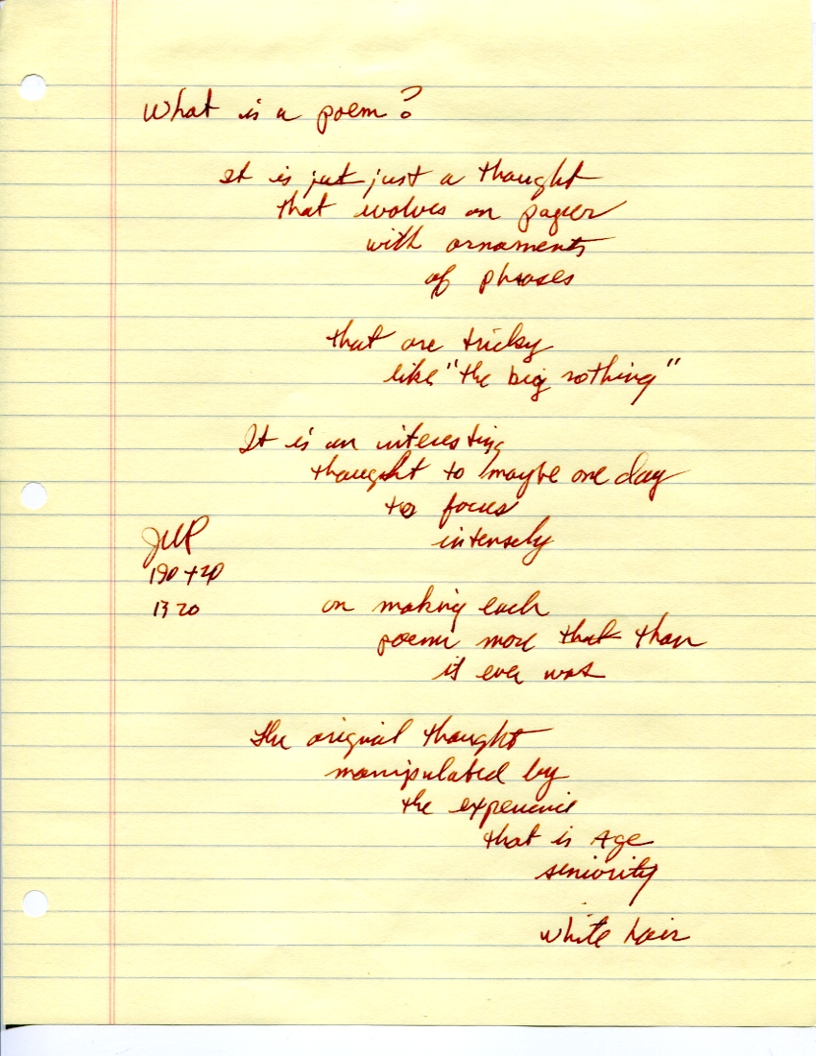 What is a poem?
It is just just a thought
that evolves on paper
with ornaments
of phrases
that are tricky
like "the big nothing"
It is an interesting
thought to maybe one day
to focus
intensely
on making each
poem more that than
it ever was
the original thought
manipulated by
the experience
that is Age
seniority
white hair
1320